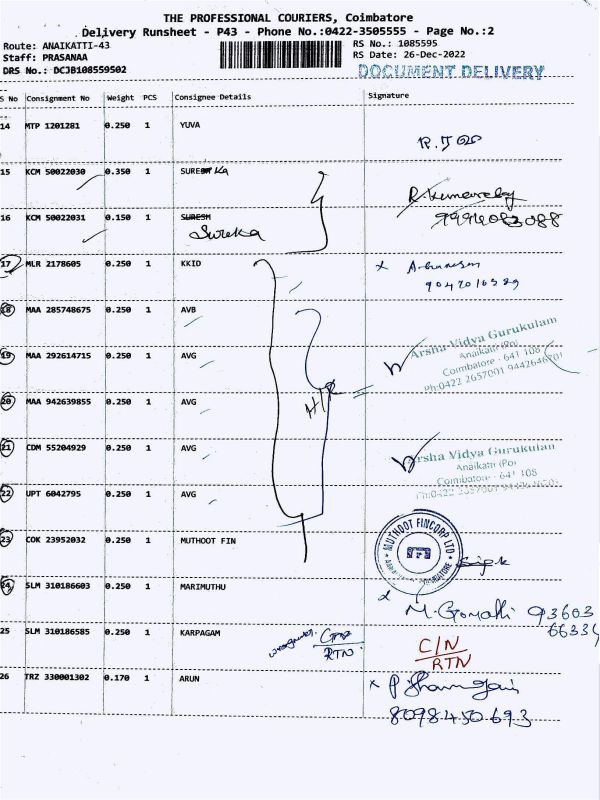 THE PROFESSIONAL COURIERS, Coimbatore
Delivery Runsheet - P43 - Phone No.:0422-3505555 - Page No.:2
Route: ANAIKATTI-43
RS No.: 1085595
Staff: PRASANAA
RS Date: 26-Dec-2022
DRS No.: DCJB108559502
DOCUMENT DELIVERY
S No Consignment No Weight PCS Consignee Details Signature
14 MTP 1201281 0.250 1 YUVA
15 KCM 50022030 0.350 1 SURE Ka
16 KCM 50022031 0.150 1 SURESH
Sureka
17 MLR 2178605 0.250 1 KKID
18 MAA 285748675 0.250 1 AVB
Arsha Vidya Gurukulam
Anaikatti (Po)
Coimbatore - 641 108
Ph:0422 2657001 9442646701
19 MAA 292614715 0.250 1 AVG
20 MAA 942639855 0.250 1 AVG
21 CDM 55204929 0.250 1 AVG
Arsha Vidya Gurukulam
Anaikatti (Po)
Coimbatore - 641 108
22 UPT 6042795 0.250 1 AVG
23 COK 23952032 0.250 1 MUTHOOT FIN
MUTHOOT FINCORP LTD
24 SLM 310186603 0.250 1 MARIMUTHU
M. Gomathi 93603
66334
25 SLM 310186585 0.250 1 KARPAGAM
C/N
RTN
26 TRZ 330001302 0.170 1 ARUN
8098450693